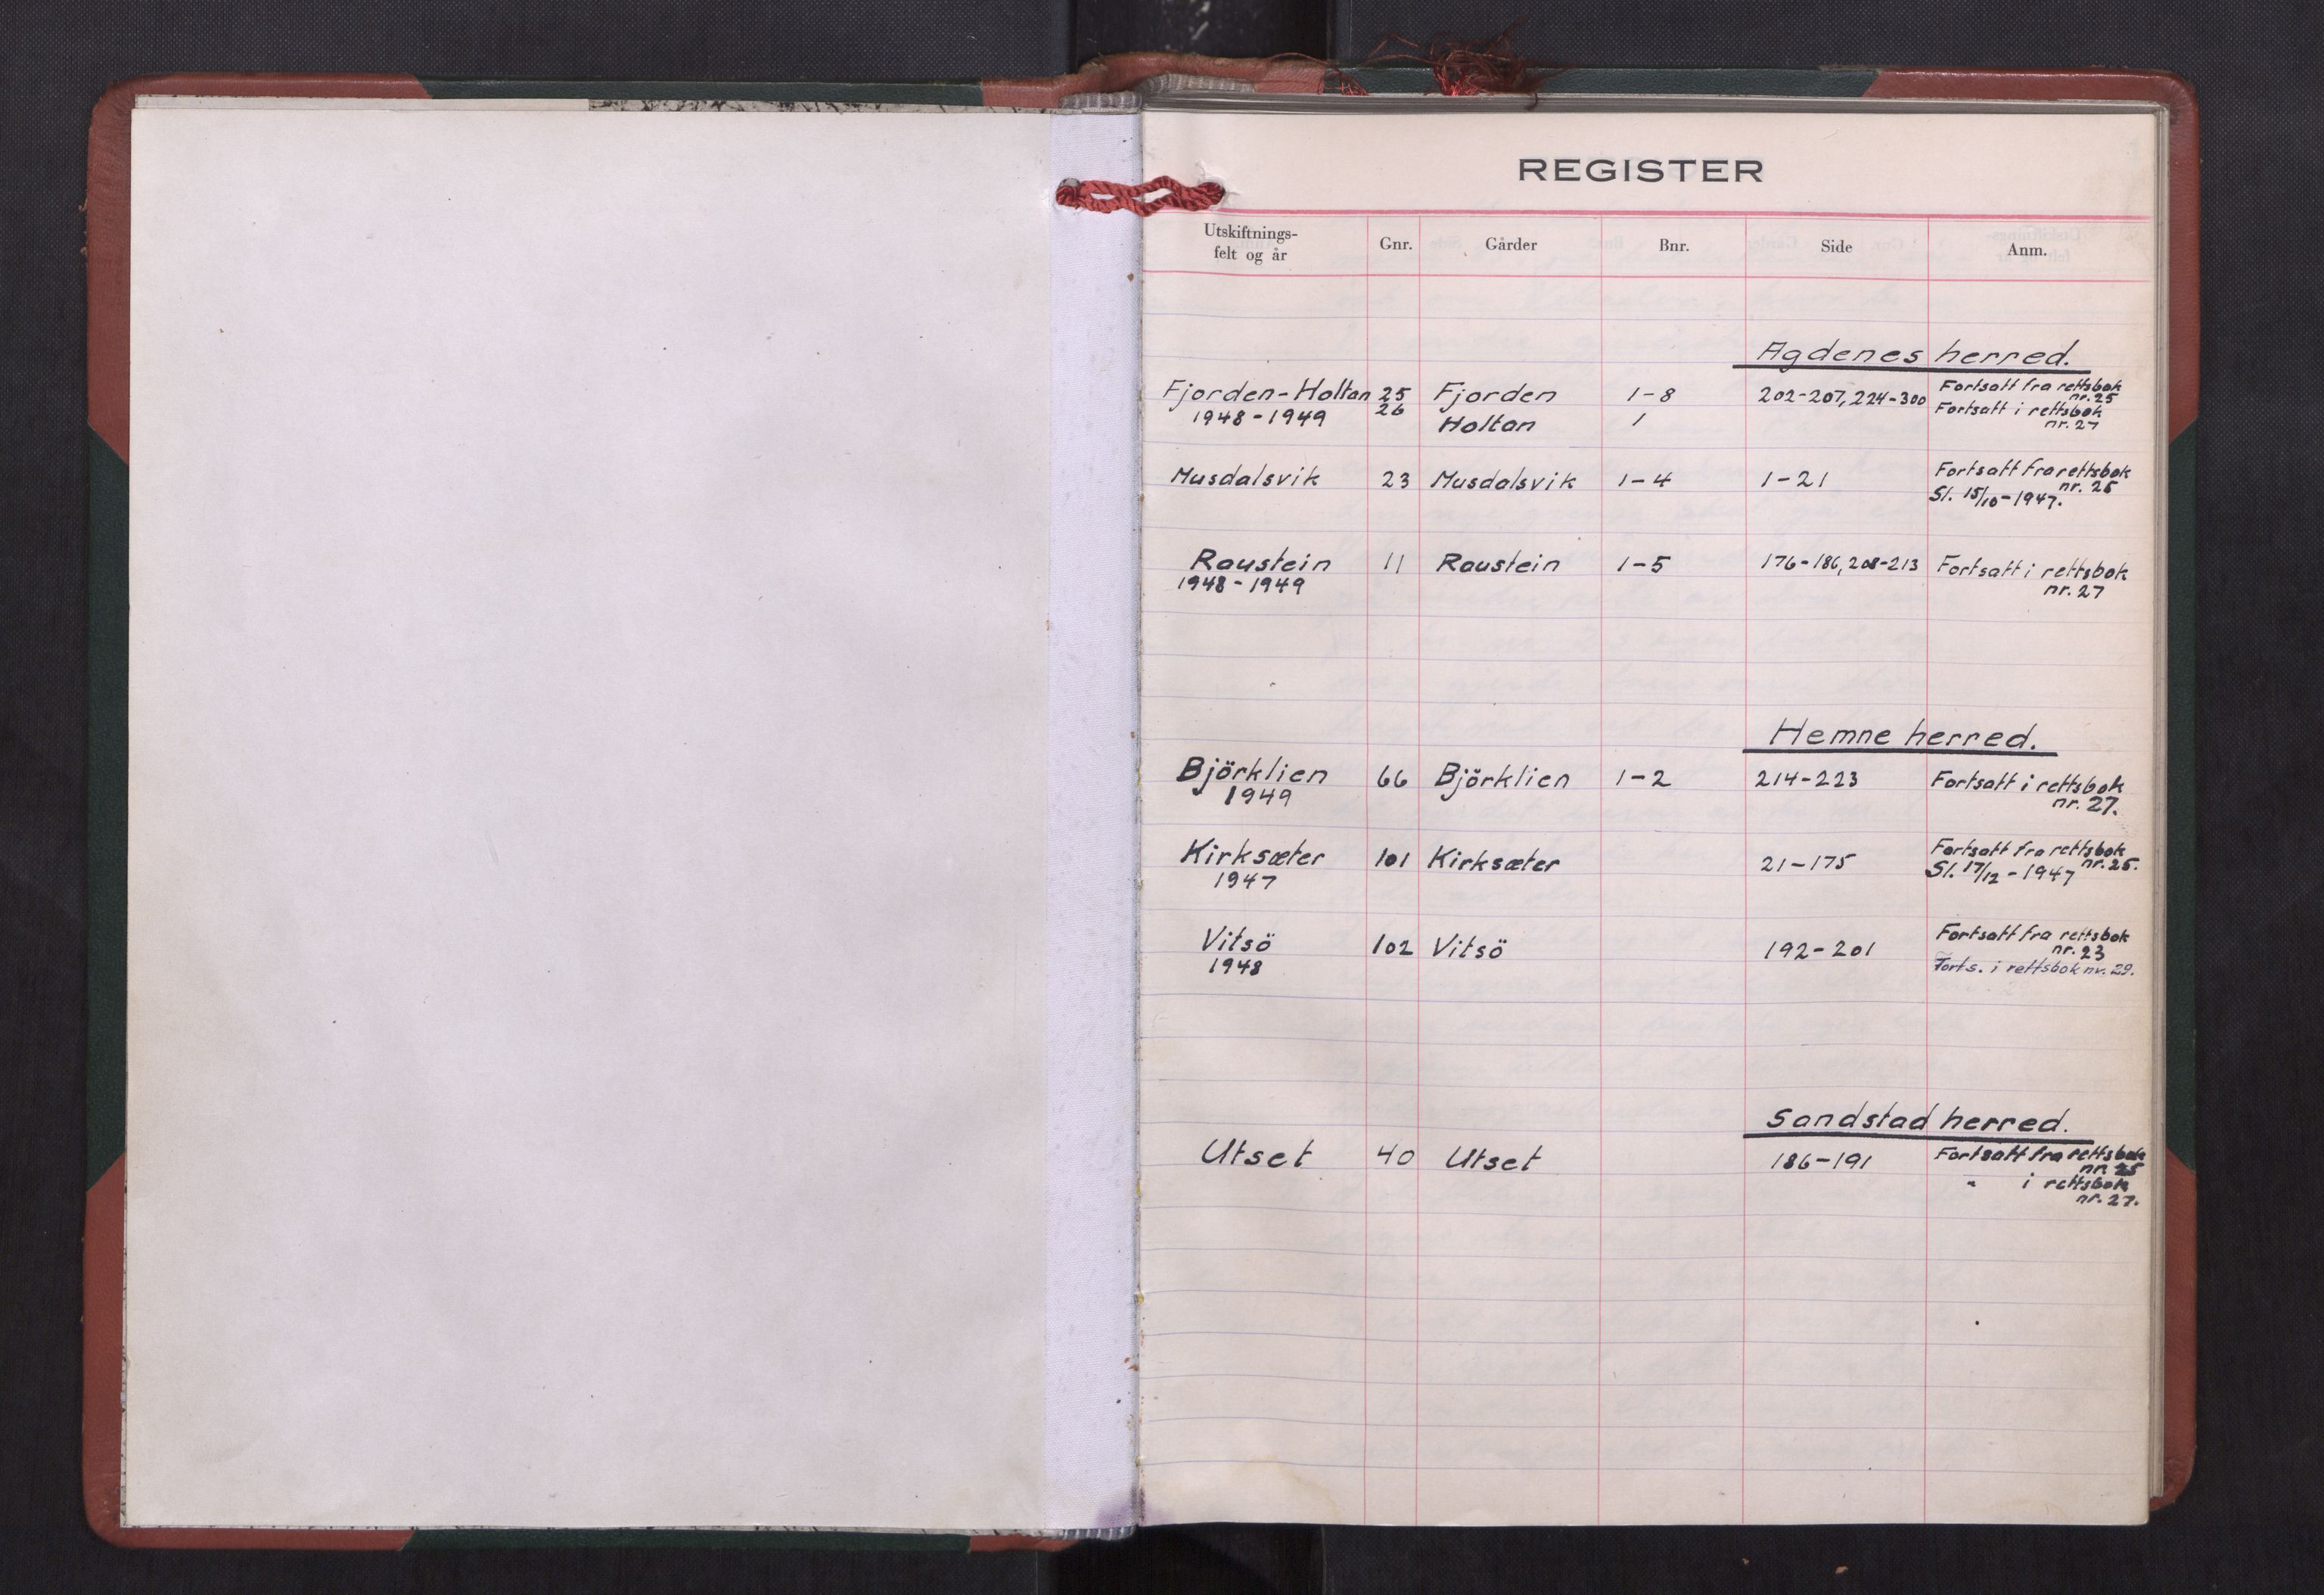 REGISTER
Utskiftnings-
felt og år
Gnr. Gårder Bnr. Side Anm.
Agdenes herred.
Fjorden-Holtan 25 Fjorden 1-8 202-207, 224-300 Fortsatt fra rettsbok
nr. 25
1948-1949 26 Holtan 1 Fortsatt i rettsbok
nr. 27
Musdalsvik 23 Musdalsvik 1-4 1-21 Fortsatt fra rettsbok
nr. 25
Sl. 15/10-1947.
Raustein 11 Raustein 1-5 176-186, 208-213 Fortsatt i rettsbok
1948-1949 nr. 27
Hemne herred.
Björklien 66 Björklien 1-2 214-223 Fortsatt i rettsbok
1949 nr. 27.
Kirksæter 101 Kirksæter 21-175 Fortsatt fra rettsbok
nr. 25.
1947 Sl. 17/12-1947
Vitsö 102 Vitsö 192-201 Fortsatt fra rettsbok
nr. 23
1948 Forts. i rettsbok nr. 29.
Sandstad herred.
Utset 40 Utset 186-191 Fortsatt fra rettsbok
nr. 25
" i rettsbok
nr. 27.